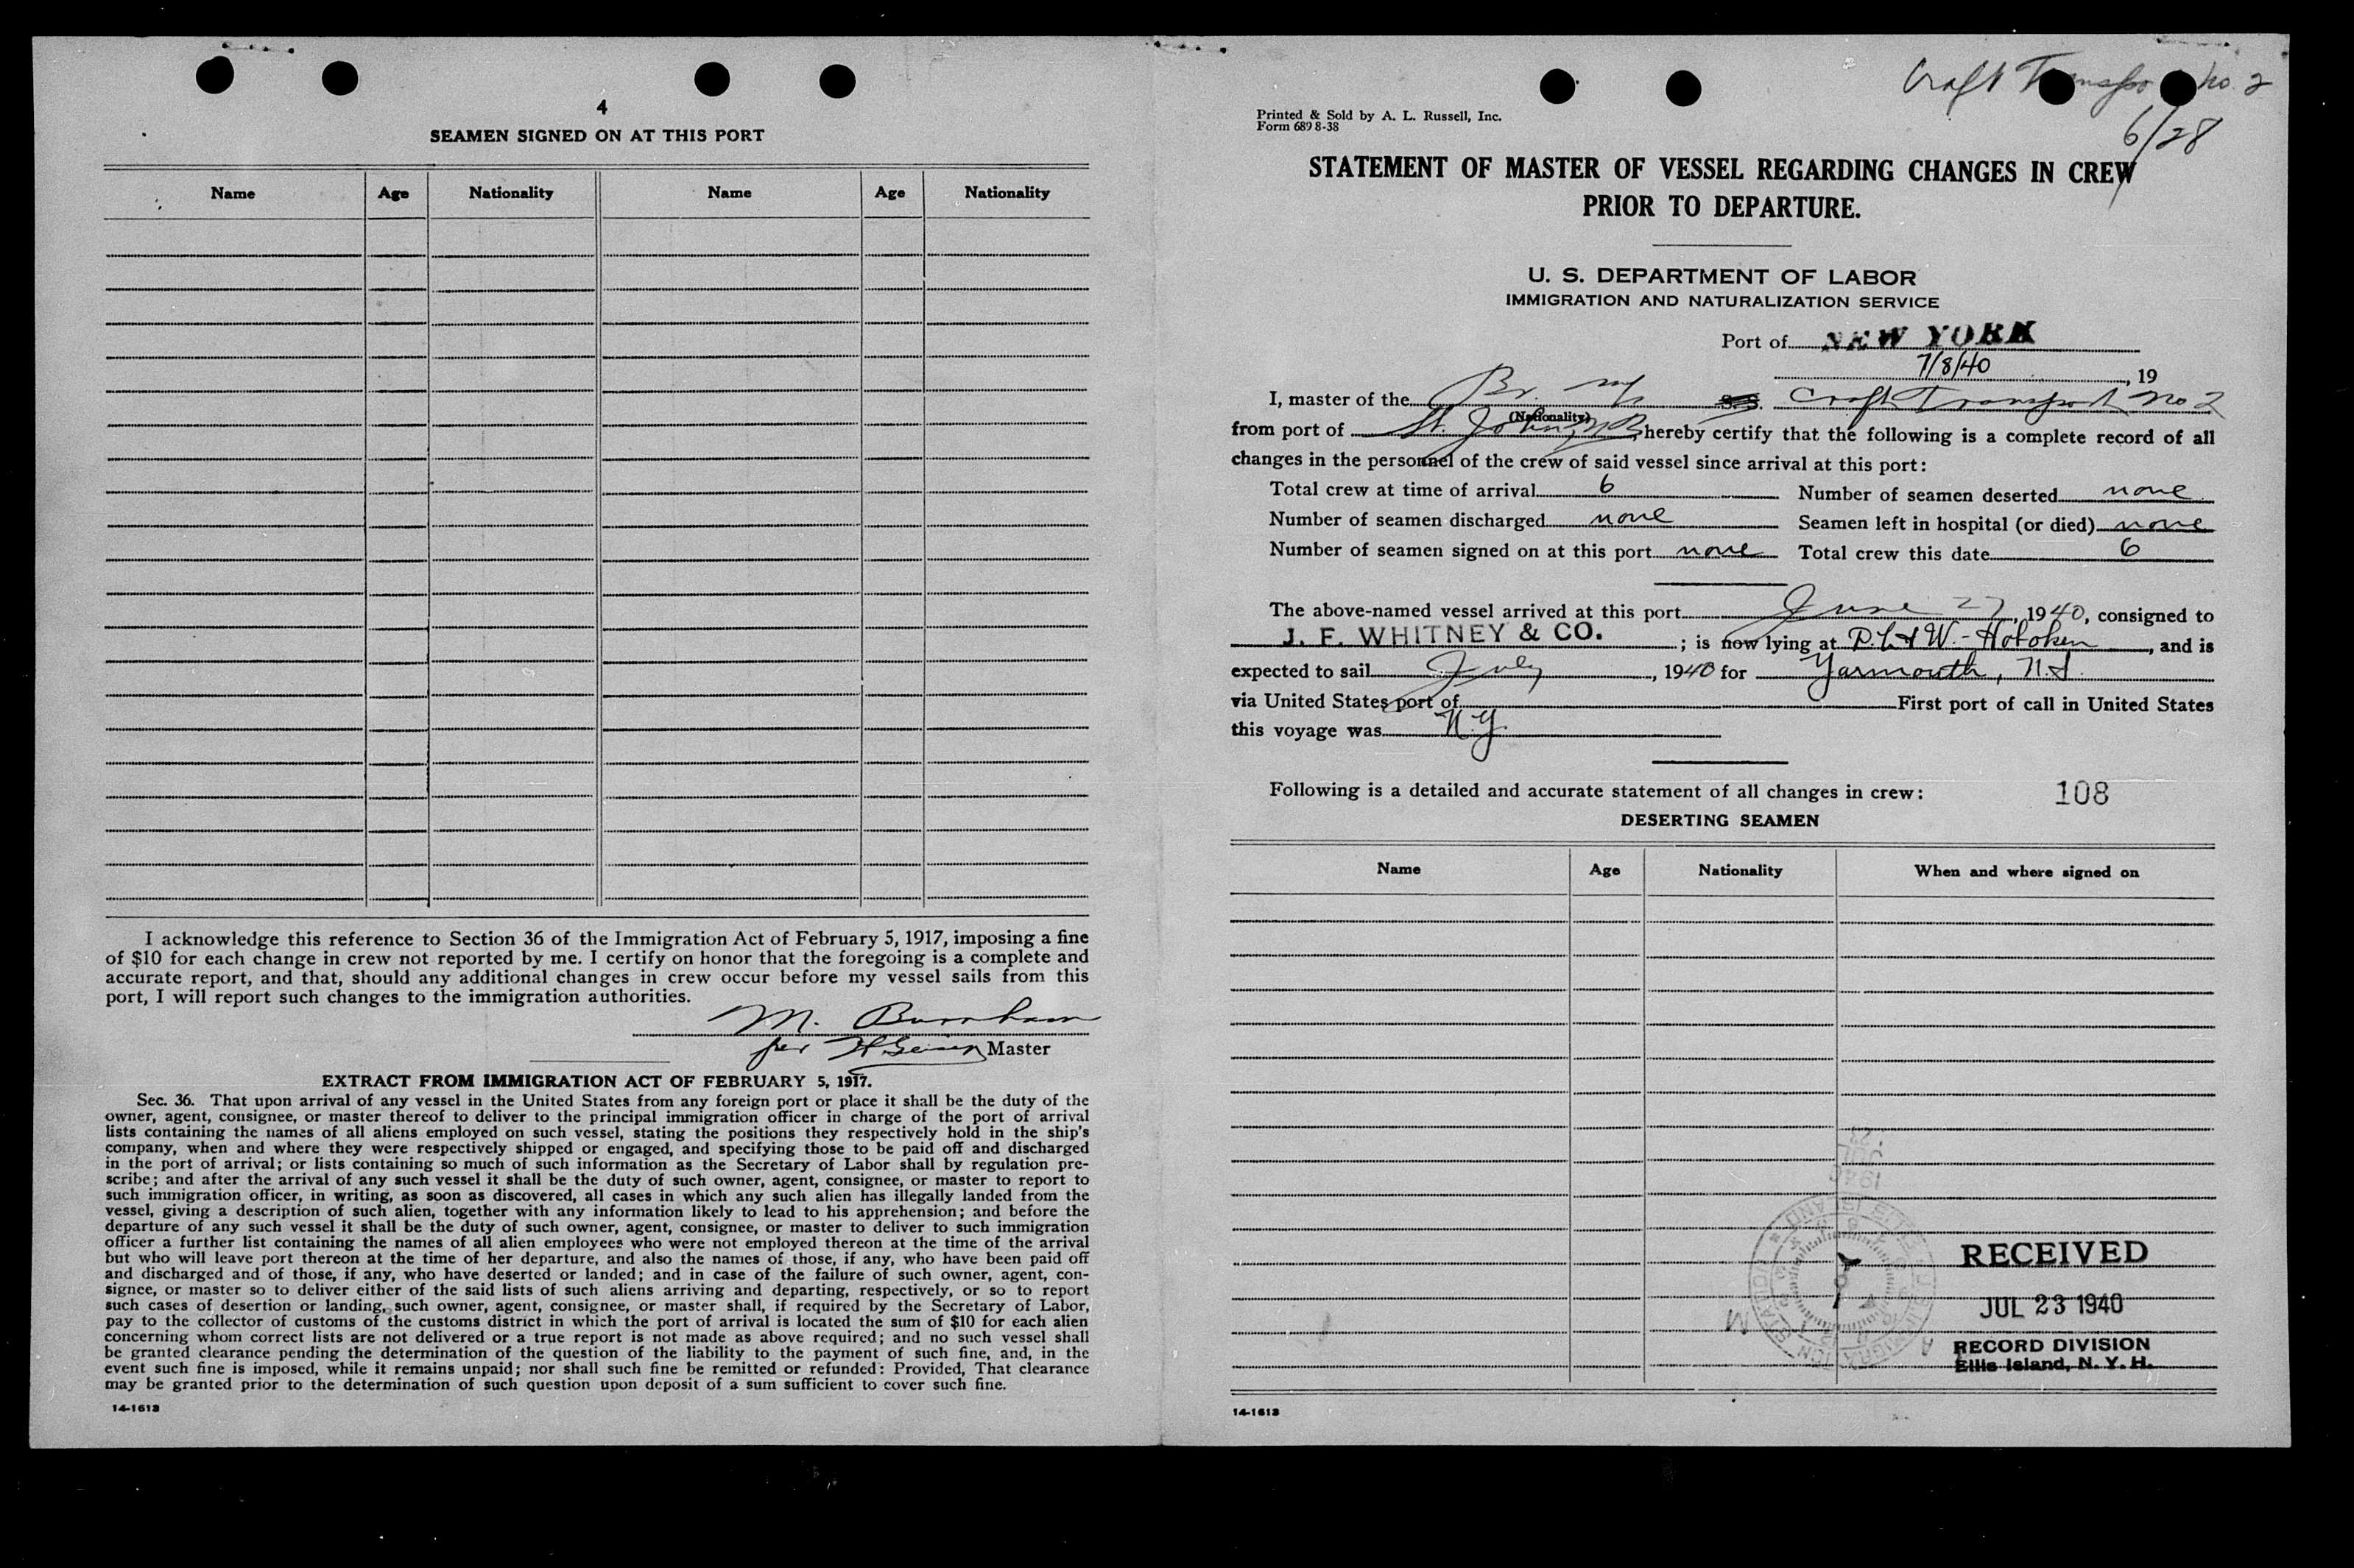 4
SEAMEN SIGNED ON AT THIS PORT
Name Age Nationality Name Age Nationality
I acknowledge this reference to Section 36 of the Immigration Act of February 5, 1917, imposing a fine
of $10 for each change in crew not reported by me. I certify on honor that the foregoing is a complete and
accurate report, and that, should any additional changes in crew occur before my vessel sails from this
port, I will report such changes to the immigration authorities.
M. Burnham
per Master
EXTRACT FROM IMMIGRATION ACT OF FEBRUARY 5, 1917.
Sec. 36. That upon arrival of any vessel in the United States from any foreign port or place it shall be the duty of the
owner, agent, consignee, or master thereof to deliver to the principal immigration officer in charge of the port of arrival
lists containing the names of all aliens employed on such vessel, stating the positions they respectively hold in the ship's
company, when and where they were respectively shipped or engaged, and specifying those to be paid off and discharged
in the port of arrival; or lists containing so much of such information as the Secretary of Labor shall by regulation pre-
scribe; and after the arrival of any such vessel it shall be the duty of such owner, agent, consignee, or master to report to
such immigration officer, in writing, as soon as discovered, all cases in which any such alien has illegally landed from the
vessel, giving a description of such alien, together with any information likely to lead to his apprehension; and before the
departure of any such vessel it shall be the duty of such owner, agent, consignee, or master to deliver to such immigration
officer a further list containing the names of all alien employees who were not employed thereon at the time of the arrival
but who will leave port thereon at the time of her departure, and also the names of those, if any, who have been paid off
and discharged and of those, if any, who have deserted or landed; and in case of the failure of such owner, agent, con-
signee, or master so to deliver either of the said lists of such aliens arriving and departing, respectively, or so to report
such cases of desertion or landing, such owner, agent, consignee, or master shall, if required by the Secretary of Labor,
pay to the collector of customs of the customs district in which the port of arrival is located the sum of $10 for each alien
concerning whom correct lists are not delivered or a true report is not made as above required; and no such vessel shall
be granted clearance pending the determination of the question of the liability to the payment of such fine, and, in the
event such fine is imposed, while it remains unpaid; nor shall such fine be remitted or refunded: Provided, That clearance
may be granted prior to the determination of such question upon deposit of a sum sufficient to cover such fine.
14-1613
Craft Transport No. 2
6/28
Printed & Sold by A. L. Russell, Inc.
Form 689 8-38
STATEMENT OF MASTER OF VESSEL REGARDING CHANGES IN CREW
PRIOR TO DEPARTURE.
U. S. DEPARTMENT OF LABOR
IMMIGRATION AND NATURALIZATION SERVICE
Port of NEW YORK
7/8/40, 19
I, master of the Br. S.S. Craft Transport No 2
(Nationality)
from port of St. John, N.B. hereby certify that the following is a complete record of all
changes in the personnel of the crew of said vessel since arrival at this port:
Total crew at time of arrival 6 Number of seamen deserted none
Number of seamen discharged none Seamen left in hospital (or died) none
Number of seamen signed on at this port none Total crew this date 6
The above-named vessel arrived at this port June 27, 1940, consigned to
J. F. WHITNEY & CO. ; is now lying at D.L&W.-Hoboken, and is
expected to sail July, 1940 for Yarmouth, N.S.
via United States port of First port of call in United States
this voyage was N.Y
Following is a detailed and accurate statement of all changes in crew: 108
DESERTING SEAMEN
Name Age Nationality When and where signed on
RECEIVED
JUL 23 1940
RECORD DIVISION
Ellis Island, N. Y. H.
14-1613